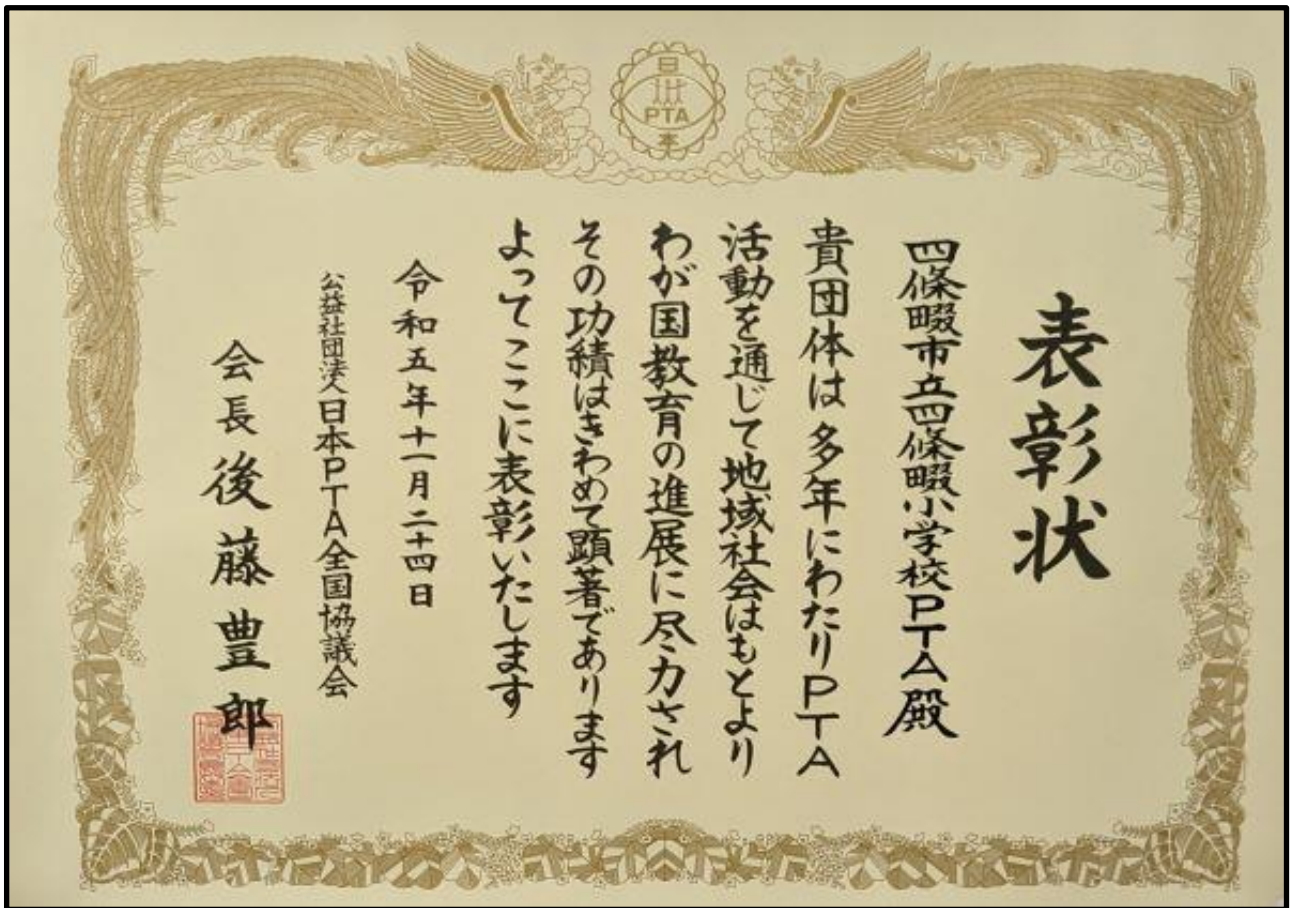 日本
PTA
表彰状
四條畷市立四條畷小学校PTA殿
貴団体は多年にわたりPTA
活動を通じて地域社会はもとより
わが国教育の進展に尽力され
その功績はきわめて顕著であります
よってここに表彰いたします
令和五年十一月二十四日
公益社団法人日本PTA全国協議会
会長後藤豊郎